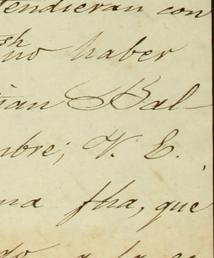 tendieran con
sh
no haber
ian Bal-
mbre; V. E.
na fha, que
do a la